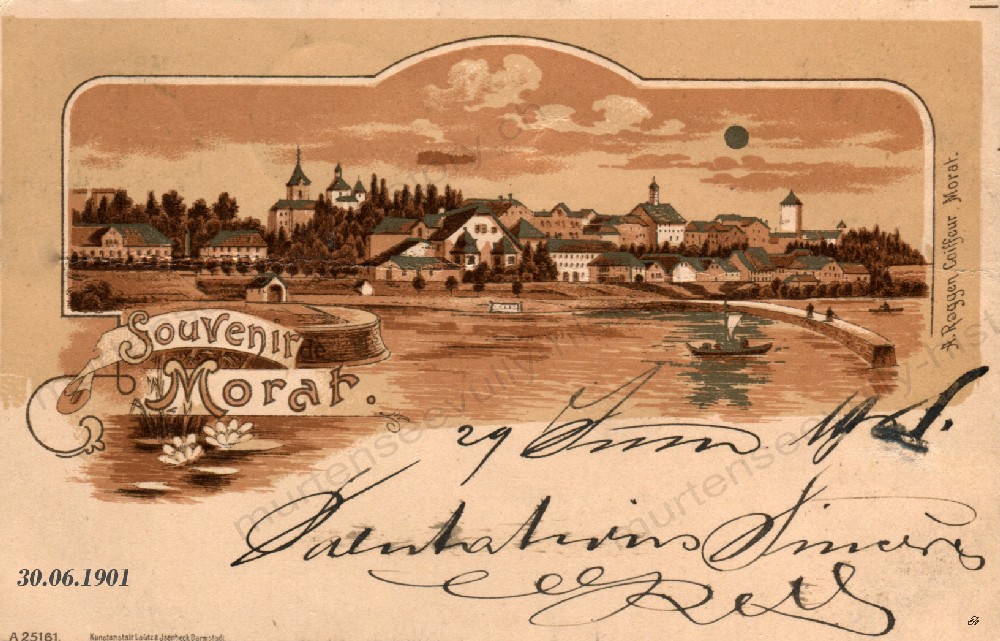 Souvenir
de
Morat.
A. Roggen Coiffeur Morat.
29 Juin 1901.
Salutations Sincères
30.06.1901
A 25161. Kunstanstalt Lautz & Jsenbeck Darmstadt